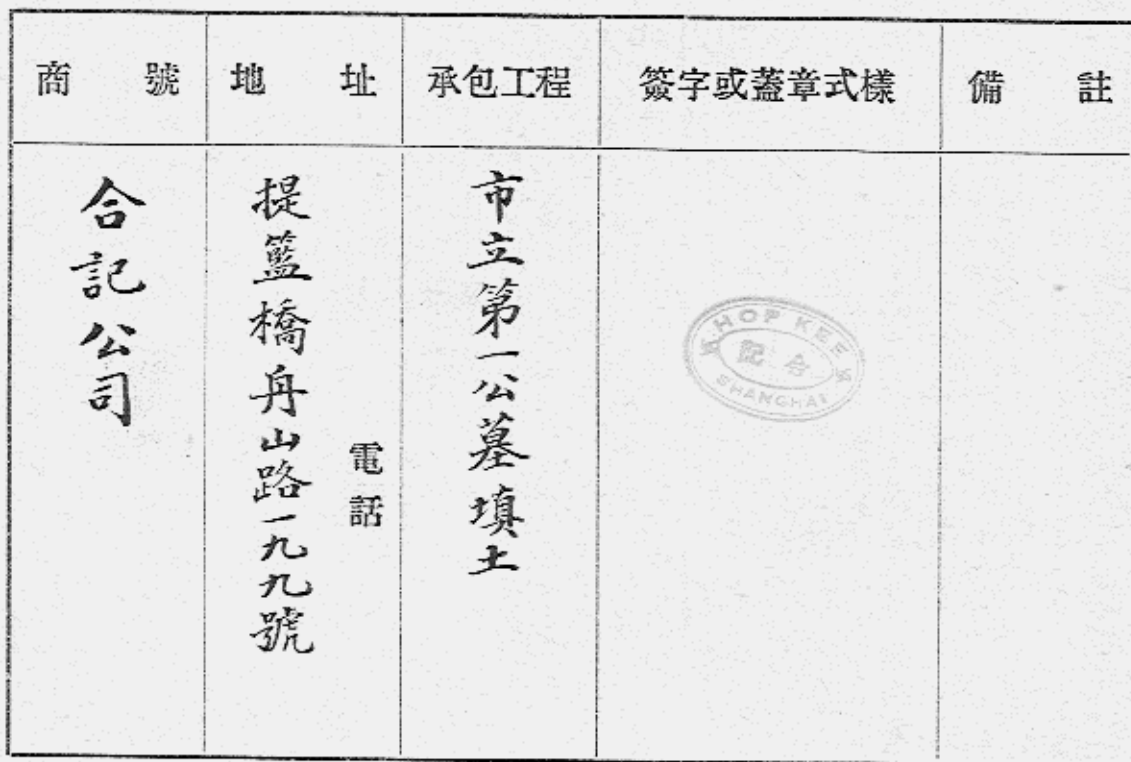 商號
地址
承包工程
簽字或蓋章式樣
備註
合記公司
提籃橋舟山路一九九號
電話
市立第一公墓填土
HOP KEE
記合
SHANGHAI